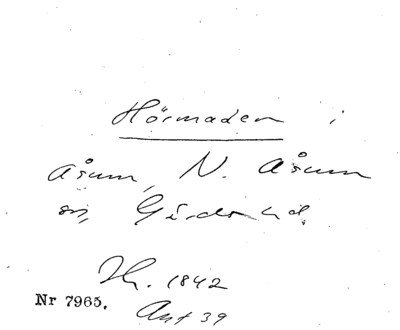 Hörmaden i
Åsum, N. Åsum
sn, Gärds hd.
Hr. 1842
Nr 7965.
Ant 39